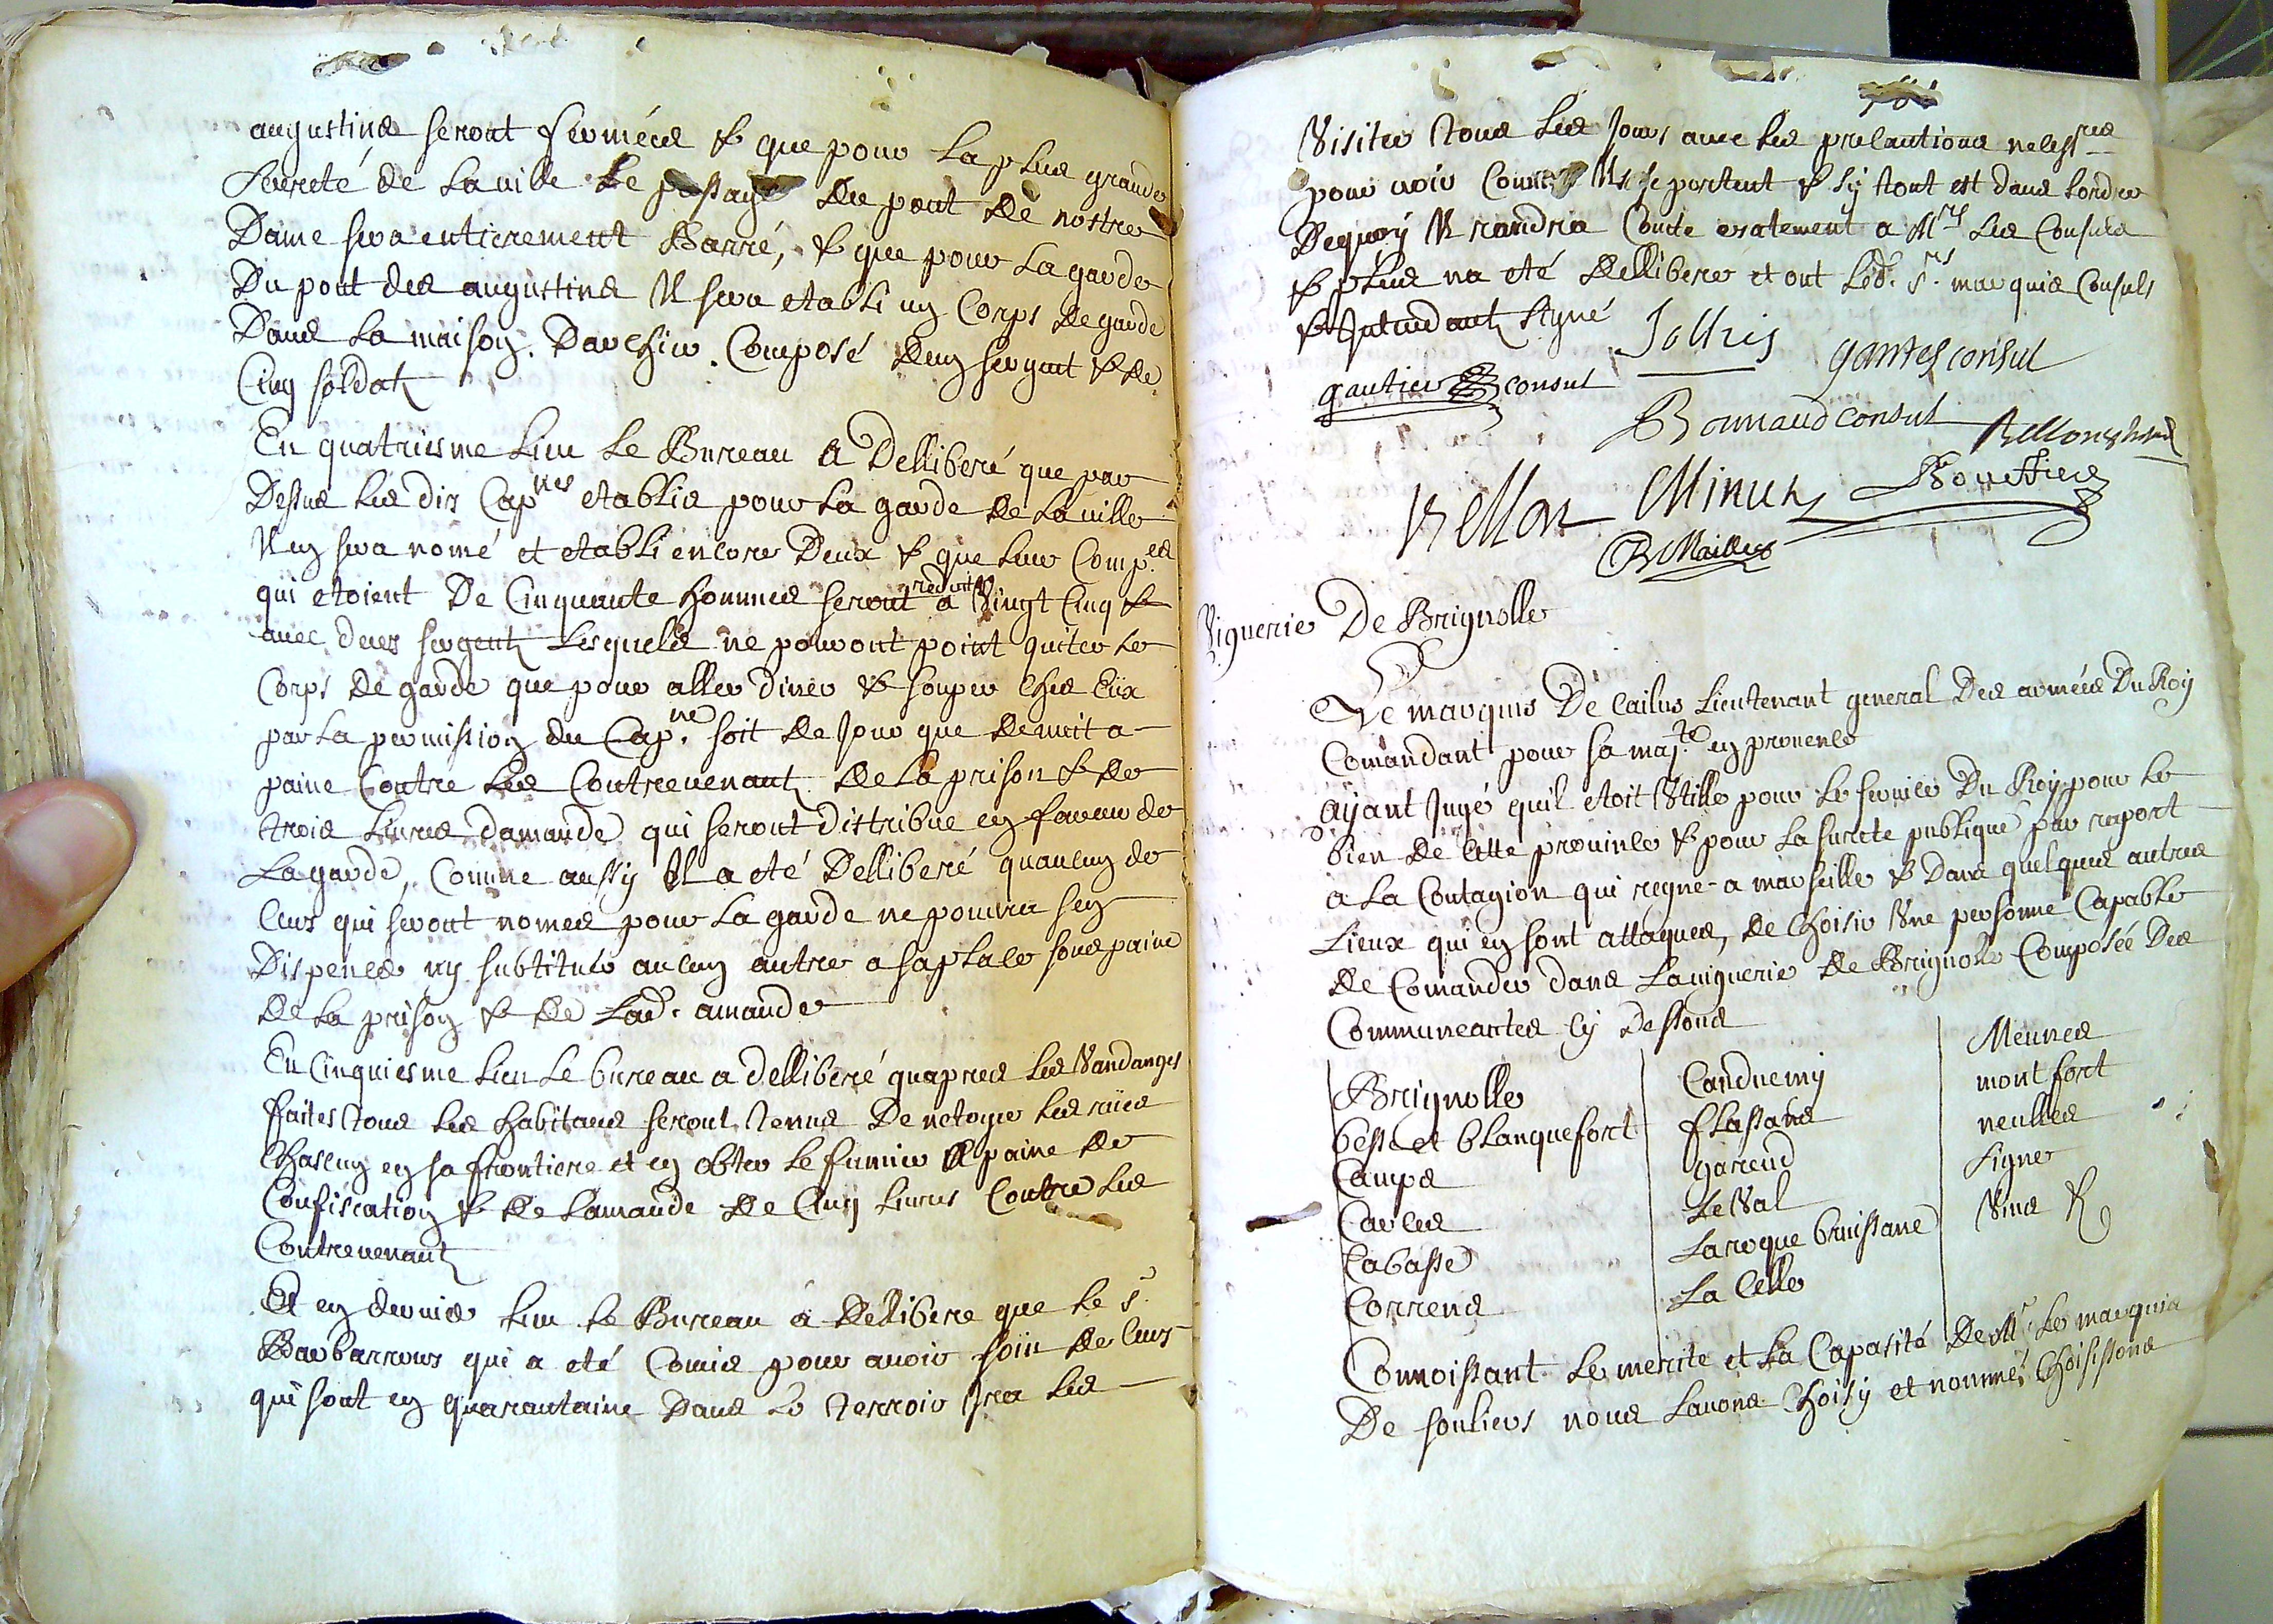 augustins seront fermées & que pour la plus grande
seureté de la ville le passage du pont de nostre
Dame sera entierement Barré, & que pour la garde
Du pont des augustins Il sera etabli un Corps de garde
Dans la maison Darchier Composé dun sergent & de
Cinq soldatz
En quatriesme lieu le Bureau a Delliberé que par
Dessus les dix Capnes etablis pour la garde de la ville
Il en sera nomé et etabli encore Deux & que leur Comp.es
qui etoient De Cinquante hommes seront reduit a Vingt Cinq &
avec deux sergentz lesquels ne pouront point quiter le
Corps de garde que pour aller diner & souper ches Eüx
par la permission du Cap.ne soit de Jour que de nuit a
paine Contre les Contrevenantz de la prison & de
trois livres damande qui seront distribue en faveur de
La garde, Comme aussy Il a eté Delliberé quaucun de
ceux qui seront nomes pour la garde ne pourra sen
Dispencer ny substituer aucun autre a sa place sous paine
de la prison & de lad. amande
En Cinquiesme lieu le bureau a delliberé quapres les Vandanges
faites tous les habitans seront tenus De netoyer les rües
Chascun en sa frontiere et en obter le fumier a paine de
Confiscation & de lamande de Cinq livres Contre les
Contrevenantz
Et en dernier lieu le Bureau a delliberé que le s.r
Barbarroux qui a eté Comis pour avoir soin de ceux
qui sont en quarantaine Dans le terroir Ira les
Visiter tous les Jours avec les precautions necess.res
pour voir Comme Ils se portent & sy tout est dans lordre
Dequoy Il randra Conte exatement a M.rs les Consuls
& plus na eté delliberé et ont led. s.rs marquis Consuls
& Intendantz signé
Sollies
gantes consul
gautier consul
Bonnaud consul
Bellon
Minuty
Routtier
Maille
Viguerie De Brignolle
Le marquis De Cailus Lieutenant general Des armées Du Roy
Comandant pour sa maj.té en provence
aÿant Jugé quil etoit Utille pour le service Du Roy pour le
bien de Cette province & pour la sureté publique par raport
a la Contagion qui regne a marseille & Dans quelques autres
Lieux qui en sont attaques, de Choisir Une personne Capable
de Comander dans la viguerie de Brignolle Composée Des
Communeautes cy Dessous
Brignolle
besse et blanquefort
Camps
Carces
Cabasse
Correns
Canduemy
flassans
gareoud
Le Val
La roque brussane
La Celle
Meunes
montfort
neulles
signe
Vins &
Connoissant le merite et la Capasité De M.r Le marquis
De souliers nous lavons Choisy et nommé, Choisissons